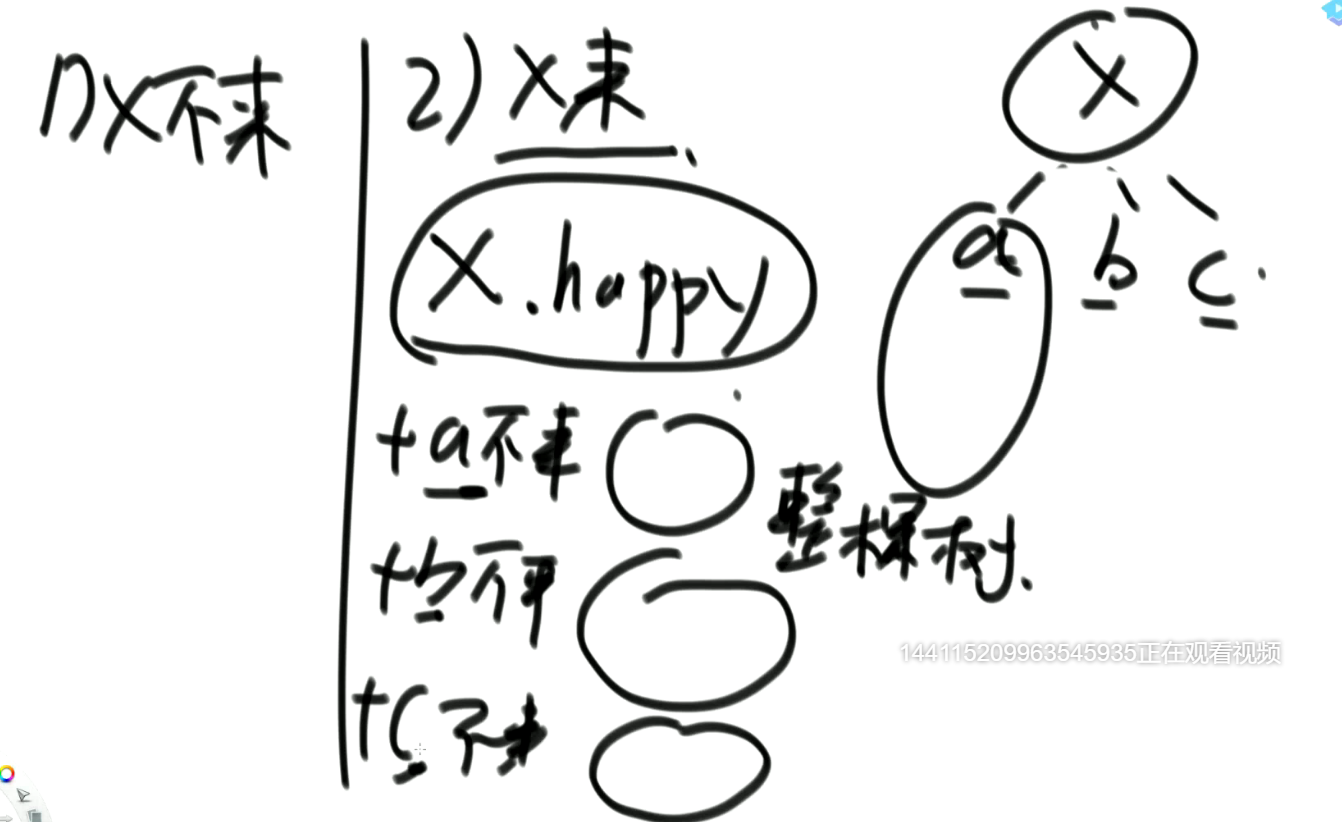 1) X不来
2) X来
X.happy
+a不来
+b不来
+c不来
X
a b c
整棵树
144115209963545935正在观看视频